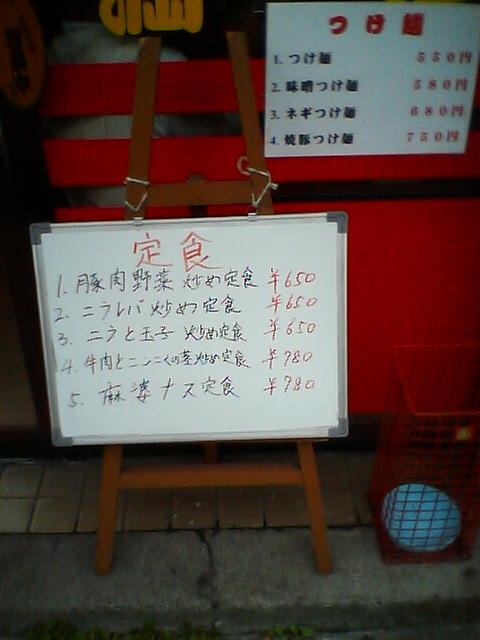 つけ麺
1. つけ麺 550円
2. 味噌つけ麺 580円
3. ネギつけ麺 680円
4. 焼豚つけ麺 750円
定食
1. 豚肉野菜炒め定食 ¥650
2. ニラレバ炒めつ定食 ¥650
3. ニラと玉子炒め定食 ¥650
4. 牛肉とニンニクの茎炒め定食 ¥780
5. 麻婆ナス定食 ¥780